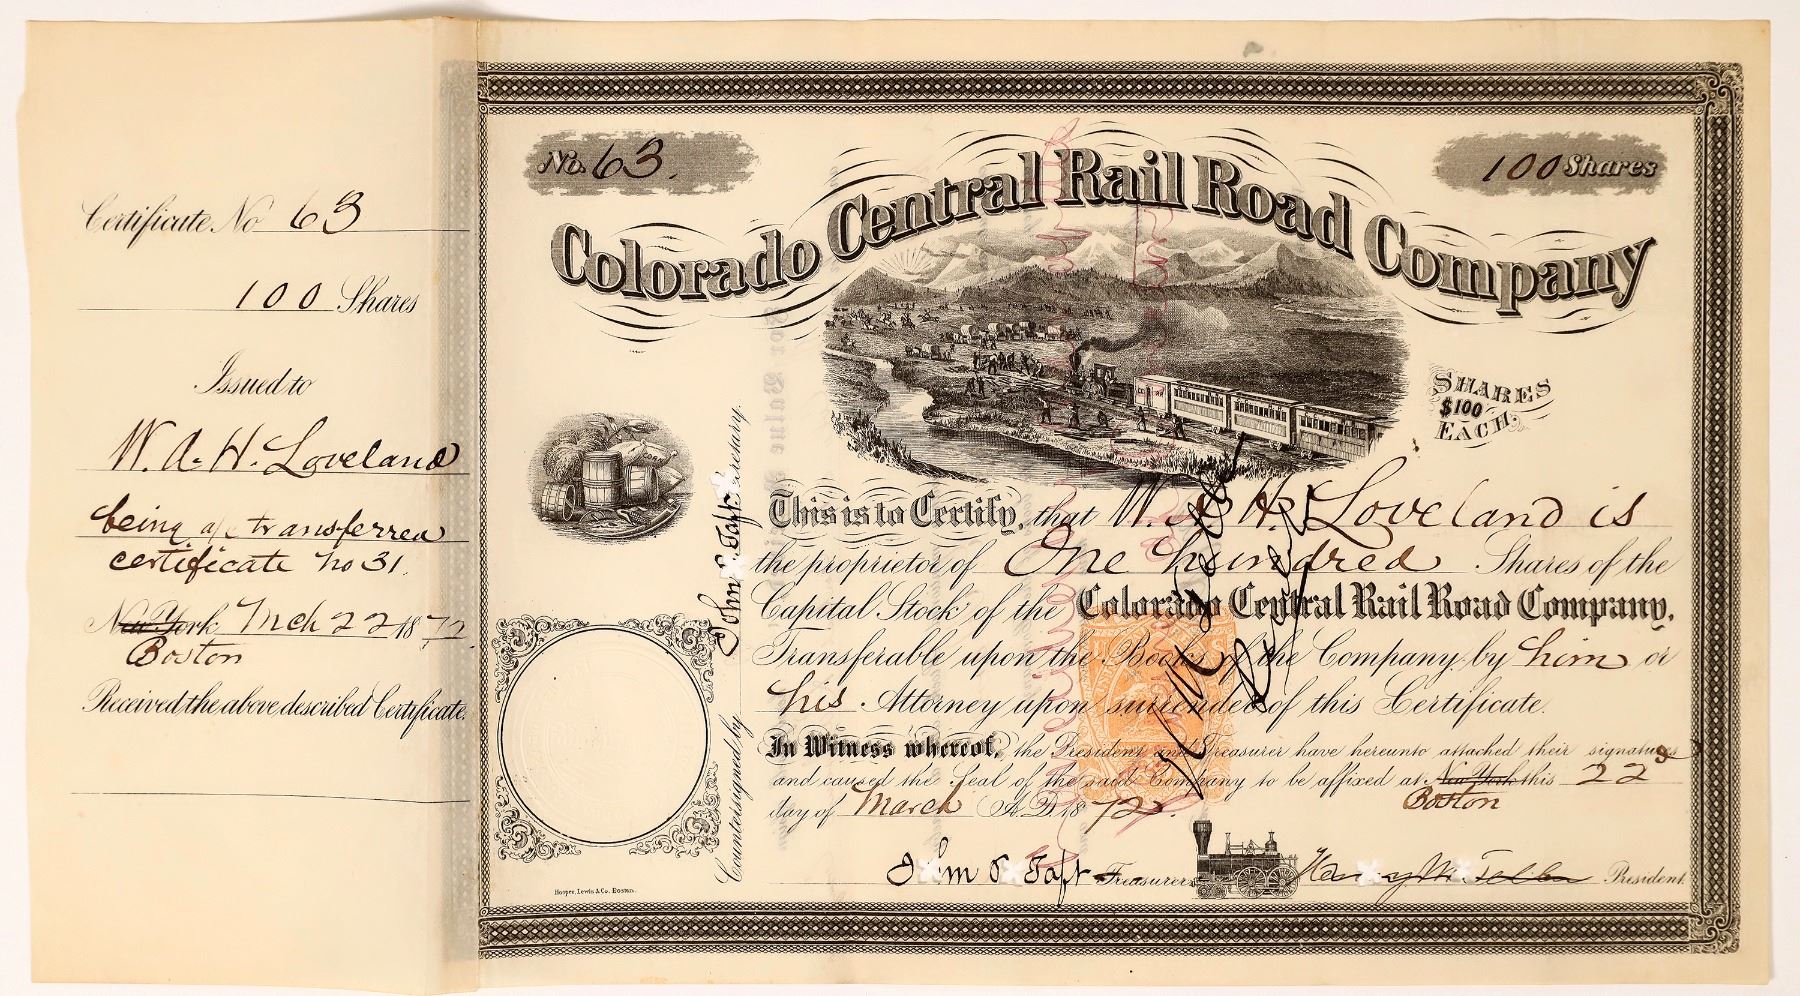 Certificate No 63
100 Shares
Issued to
W. A. H. Loveland
being a/c transferred
certificate no 31.
New York, Mch 22 1872
Boston
Received, the above described Certificate.
No. 63.
100 Shares
Colorado Central Rail Road Company
SHARES
$100
EACH.
This is to Certify, that W. A. H. Loveland is
the proprietor of One hundred Shares of the
Capital Stock of the Colorado Central Rail Road Company.
Transferable upon the Books of the Company by him or
his Attorney upon surrender of this Certificate.
In Witness whereof, the President and Treasurer have hereunto attached their signatures
and caused the Seal of the said Company to be affixed at New York this 22d
Boston
day of March A.D. 1872.
Countersigned by John S. Taft Secretary.
John S. Taft Treasurer
Henry M. Teller President.
Hooper, Lewis & Co. Boston.